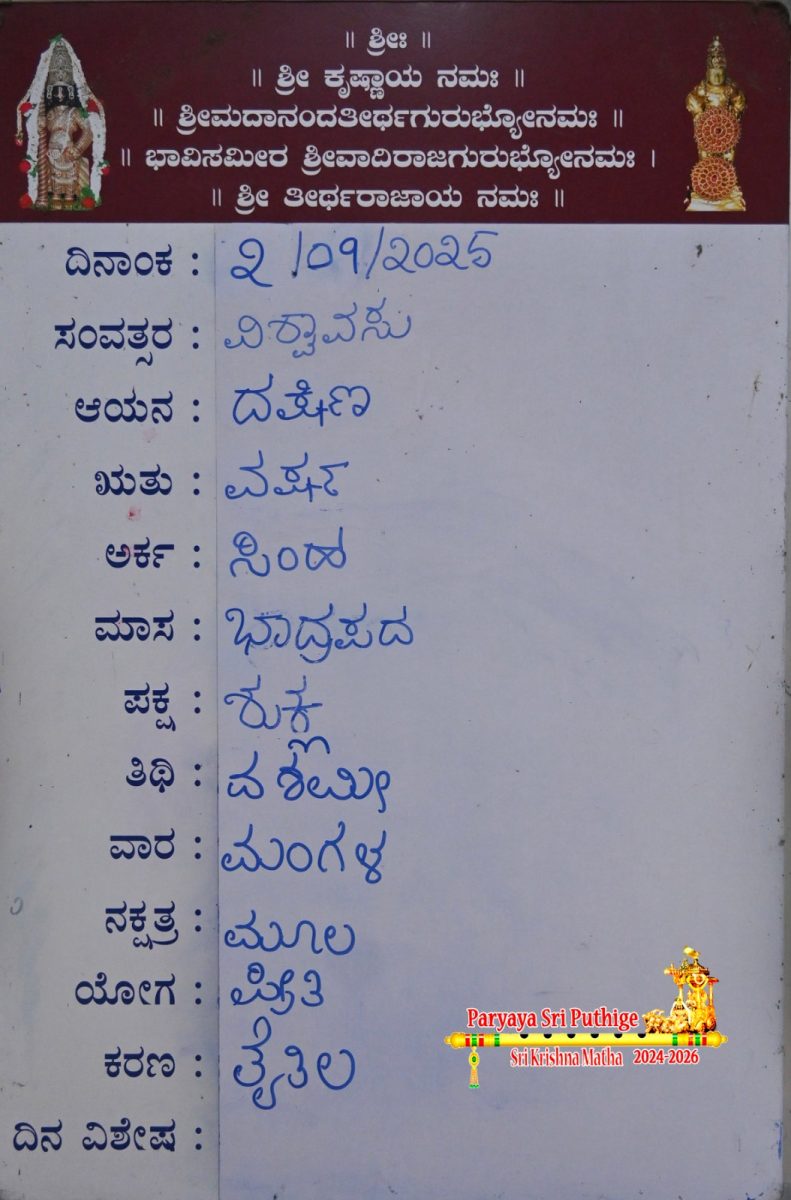 ॥ ಶ್ರೀಃ ॥
॥ ಶ್ರೀ ಕೃಷ್ಣಾಯ ನಮಃ ॥
॥ ಶ್ರೀಮದಾನಂದತೀರ್ಥಗುರುಭ್ಯೋನಮಃ ॥
॥ ಭಾವಿಸಮೀರ ಶ್ರೀವಾದಿರಾಜಗುರುಭ್ಯೋನಮಃ ।
॥ ಶ್ರೀ ತೀರ್ಥರಾಜಾಯ ನಮಃ ॥
ದಿನಾಂಕ : 2/09/2025
ಸಂವತ್ಸರ : ವಿಶ್ವಾವಸು
ಆಯನ : ದಕ್ಷಿಣ
ಋತು : ವರ್ಷ
ಅರ್ಕ : ಸಿಂಹ
ಮಾಸ : ಭಾದ್ರಪದ
ಪಕ್ಷ : ಶುಕ್ಲ
ತಿಥಿ : ದಶಮೀ
ವಾರ : ಮಂಗಳ
ನಕ್ಷತ್ರ : ಮೂಲ
ಯೋಗ : ಪ್ರೀತಿ
ಕರಣ : ತೈತಿಲ
ದಿನ ವಿಶೇಷ :
Paryaya Sri Puthige
Sri Krishna Matha 2024-2026